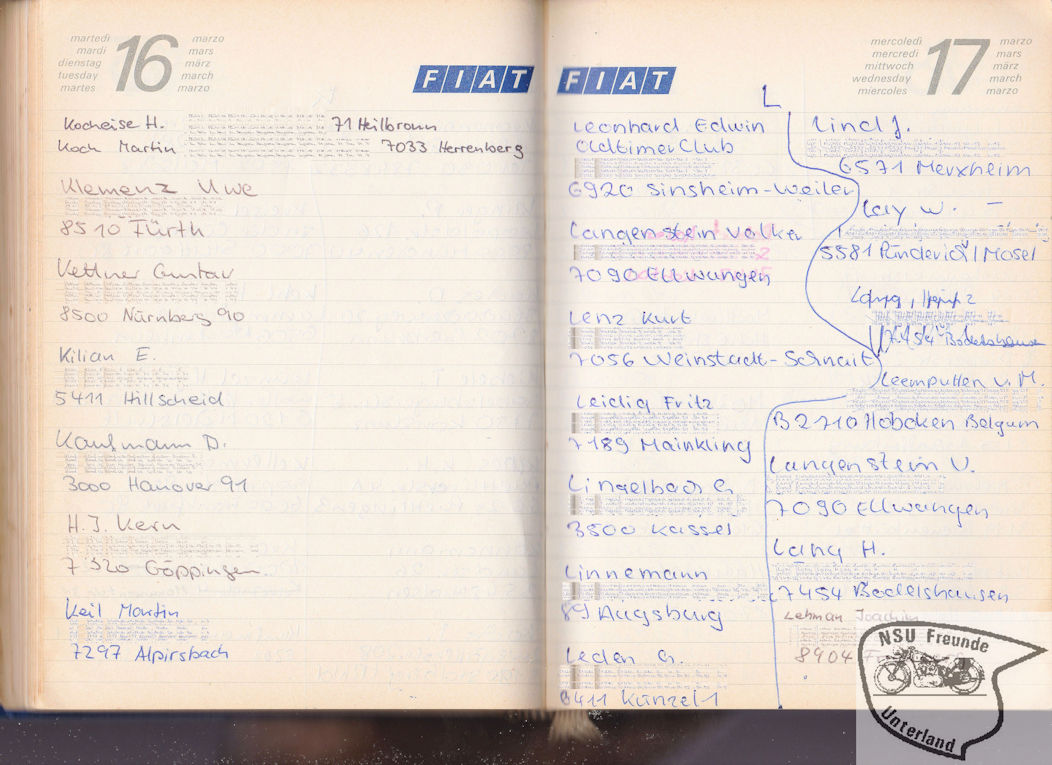 martedì
mardi
dienstag
tuesday
martes
16
marzo
mars
märz
march
marzo
FIAT
Kocheise H. 71 Heilbronn
Koch Martin 7033 Herrenberg
Klemenz Uwe
8510 Fürth
Kettner Gustav
8500 Nürnberg 90
Kilian E.
5411 Hillscheid
Kaufmann D.
3000 Hanover 91
H.J. Kern
7320 Göppingen
Keil Martin
7297 Alpirsbach
FIAT
mercoledì
mercredi
mittwoch
wednesday
miercoles
17
marzo
mars
märz
march
marzo
L
Leonhard Edwin
Oldtimer Club
6920 Sinsheim-Weiler
Langenstein Volker
7090 Ellwangen
Lenz Kurt
7056 Weinstadt-Schnait
Leidig Fritz
7189 Mainkling
Lingelbach G.
3500 Kassel
Linnemann
89 Augsburg
Leden G.
6411 Künzel-1
Lind J.
6571 Merxheim
Lay W. -
5581 Pünderich / Mosel
Lang, Heinz
7454 Bodelshausen
Leemputten v. M.
B 2710 Hoboken Belgum
Langenstein V.
7090 Ellwangen
Lang H.
7454 Bodelshausen
Lehman Joachim
8904
NSU Freunde
Unterland